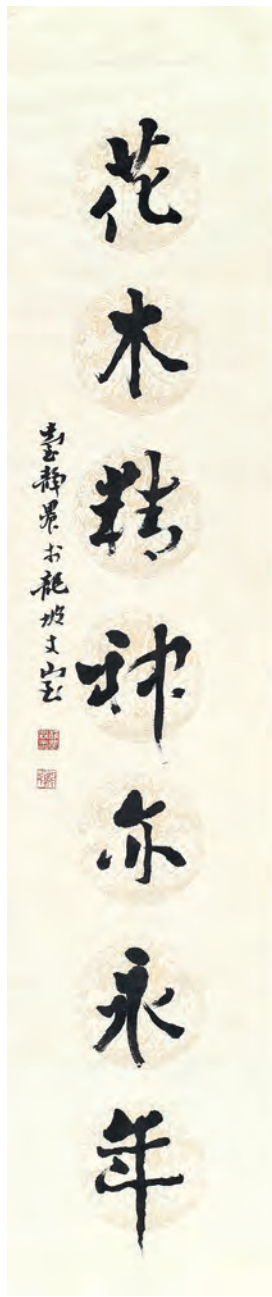 花木精神亦永年
臺靜農於龍坡丈室